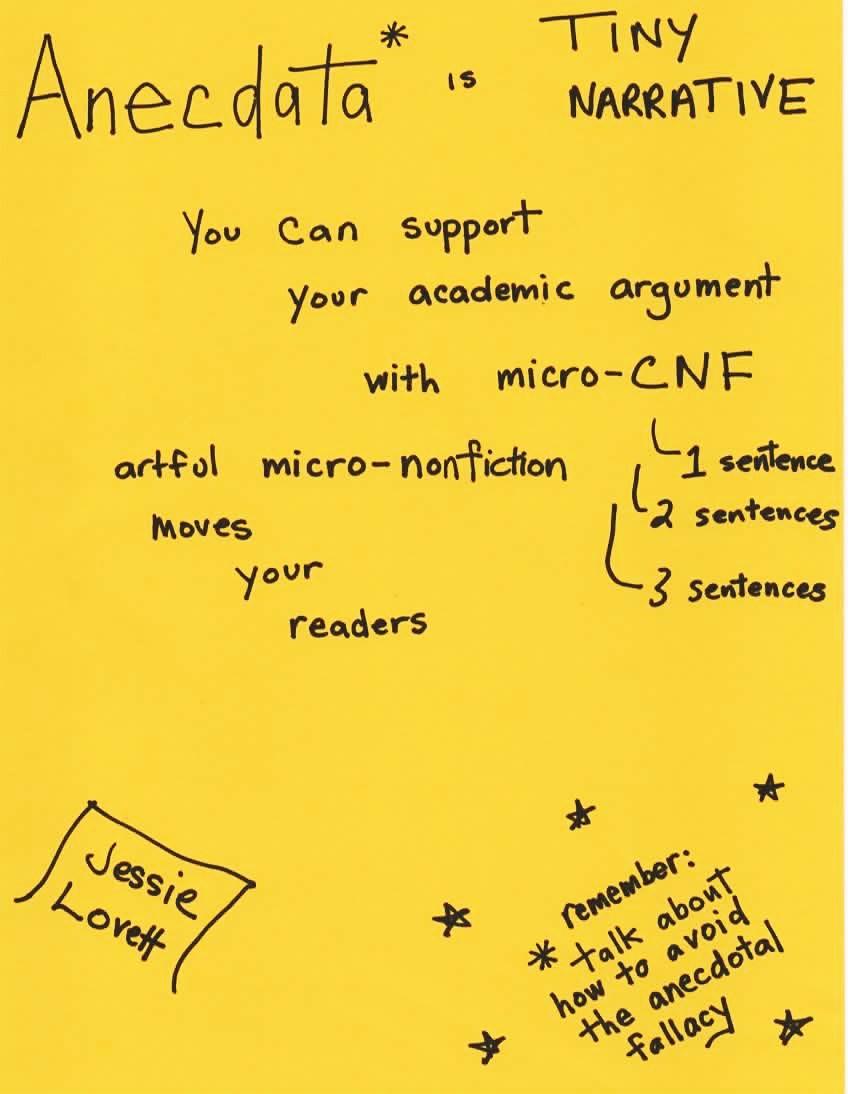 Anecdata* is TINY
NARRATIVE
You can support
your academic argument
with micro-CNF
1 sentence
2 sentences
3 sentences
artful micro-nonfiction
moves
your
readers
Jessie
Lovett
remember:
* talk about
how to avoid
the anecdotal
fallacy